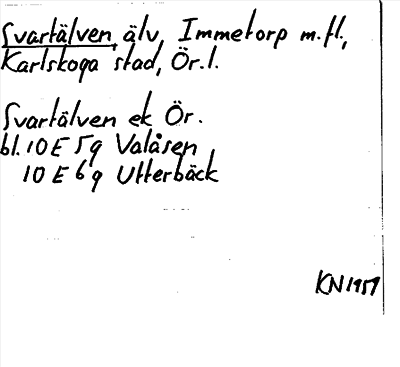 Svartälven, älv, Immetorp m.fl.,
Karlskoga stad, Ör.l.
Svartälven ek Ör.
bl. 10 E 5g Valåsen
10 E 6g Utterbäck
KN 1957